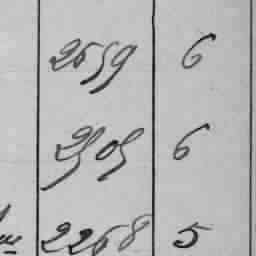 2659 6
2505 6
2268 5